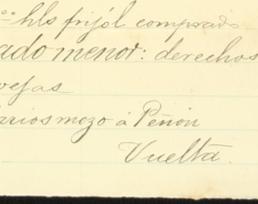 hls frijól comprado
ado menor: derechos
vejas
arios mozo á Peñon
Vuelta.